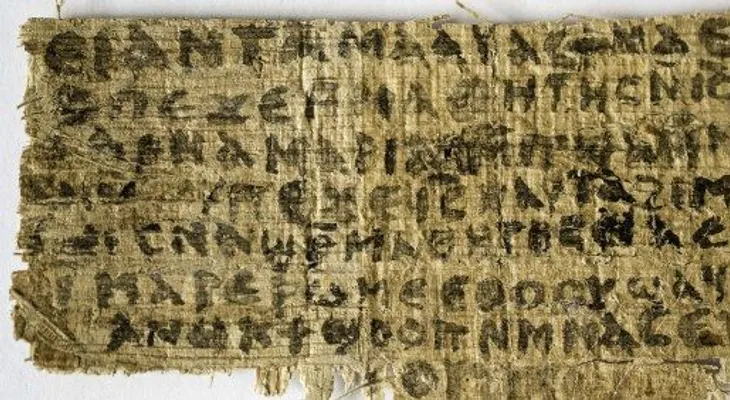 ⲉⲓ ⲁⲛ ⲧⲁⲙⲁⲁⲩ ⲁⲥϯ ⲛⲁⲉ
ⲡⲉϫⲉ ⲙⲙⲁⲑⲏⲧⲏⲥ ⲛⲓ̅ⲥ̅
ⲁⲣⲛⲁ ⲙⲁⲣⲓⲁⲙ ⲙⲡϣⲁ ⲙ
ⲡⲉϫⲉ ⲓ̅ⲥ̅ ⲛⲁⲩ ⲧⲁϩⲓⲙ
ⲥⲛⲁϣⲣⲙⲁⲑⲏⲧⲏⲥ ⲛⲁⲉ
ⲙⲁⲣⲉⲣⲱⲙⲉ ⲉⲑⲟⲟⲩ ϣⲁϥ
ⲁⲛⲟⲕ ϯϣⲟⲟⲡ ⲛⲙⲙⲁⲥ ⲉ